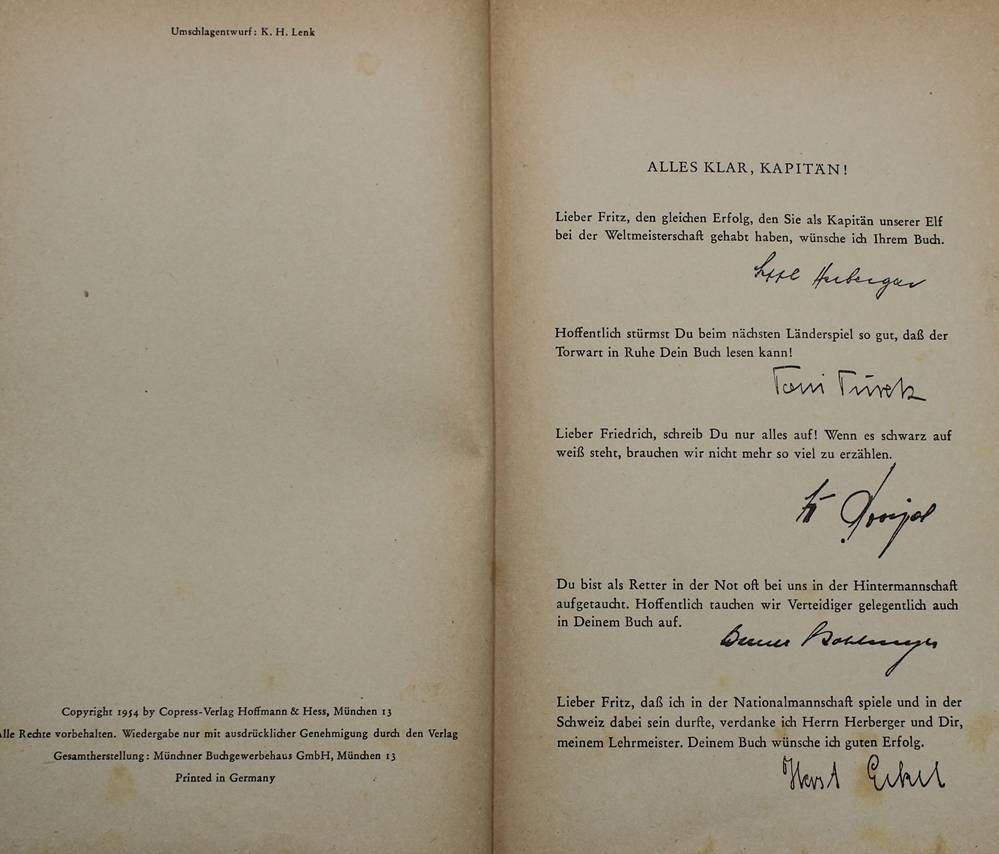 Umschlagentwurf: K. H. Lenk
Copyright 1954 by Copress-Verlag Hoffmann & Hess, München 13
lle Rechte vorbehalten. Wiedergabe nur mit ausdrücklicher Genehmigung durch den Verlag
Gesamtherstellung: Münchner Buchgewerbehaus GmbH, München 13
Printed in Germany
ALLES KLAR, KAPITÄN!
Lieber Fritz, den gleichen Erfolg, den Sie als Kapitän unserer Elf
bei der Weltmeisterschaft gehabt haben, wünsche ich Ihrem Buch.
Herberger
Hoffentlich stürmst Du beim nächsten Länderspiel so gut, daß der
Torwart in Ruhe Dein Buch lesen kann!
Toni Turek
Lieber Friedrich, schreib Du nur alles auf! Wenn es schwarz auf
weiß steht, brauchen wir nicht mehr so viel zu erzählen.
Du bist als Retter in der Not oft bei uns in der Hintermannschaft
aufgetaucht. Hoffentlich tauchen wir Verteidiger gelegentlich auch
in Deinem Buch auf.
Werner Kohlmeyer
Lieber Fritz, daß ich in der Nationalmannschaft spiele und in der
Schweiz dabei sein durfte, verdanke ich Herrn Herberger und Dir,
meinem Lehrmeister. Deinem Buch wünsche ich guten Erfolg.
Horst Eckel